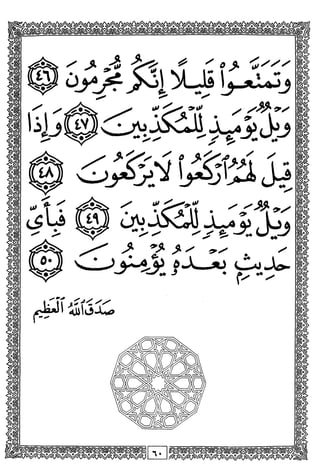 وَتَمَتَّعُوا۟ قَلِيلًا إِنَّكُم مُّجْرِمُونَ ٤٦
وَيْلٌ يَوْمَئِذٍ لِّلْمُكَذِّبِينَ ٤٧ وَإِذَا
قِيلَ لَهُمُ ٱرْكَعُوا۟ لَا يَرْكَعُونَ ٤٨
وَيْلٌ يَوْمَئِذٍ لِّلْمُكَذِّبِينَ ٤٩ فَبِأَىِّ
حَدِيثٍۭ بَعْدَهُۥ يُؤْمِنُونَ ٥٠
صَدَقَ اللَّهُ الْعَظِيم
٦٠